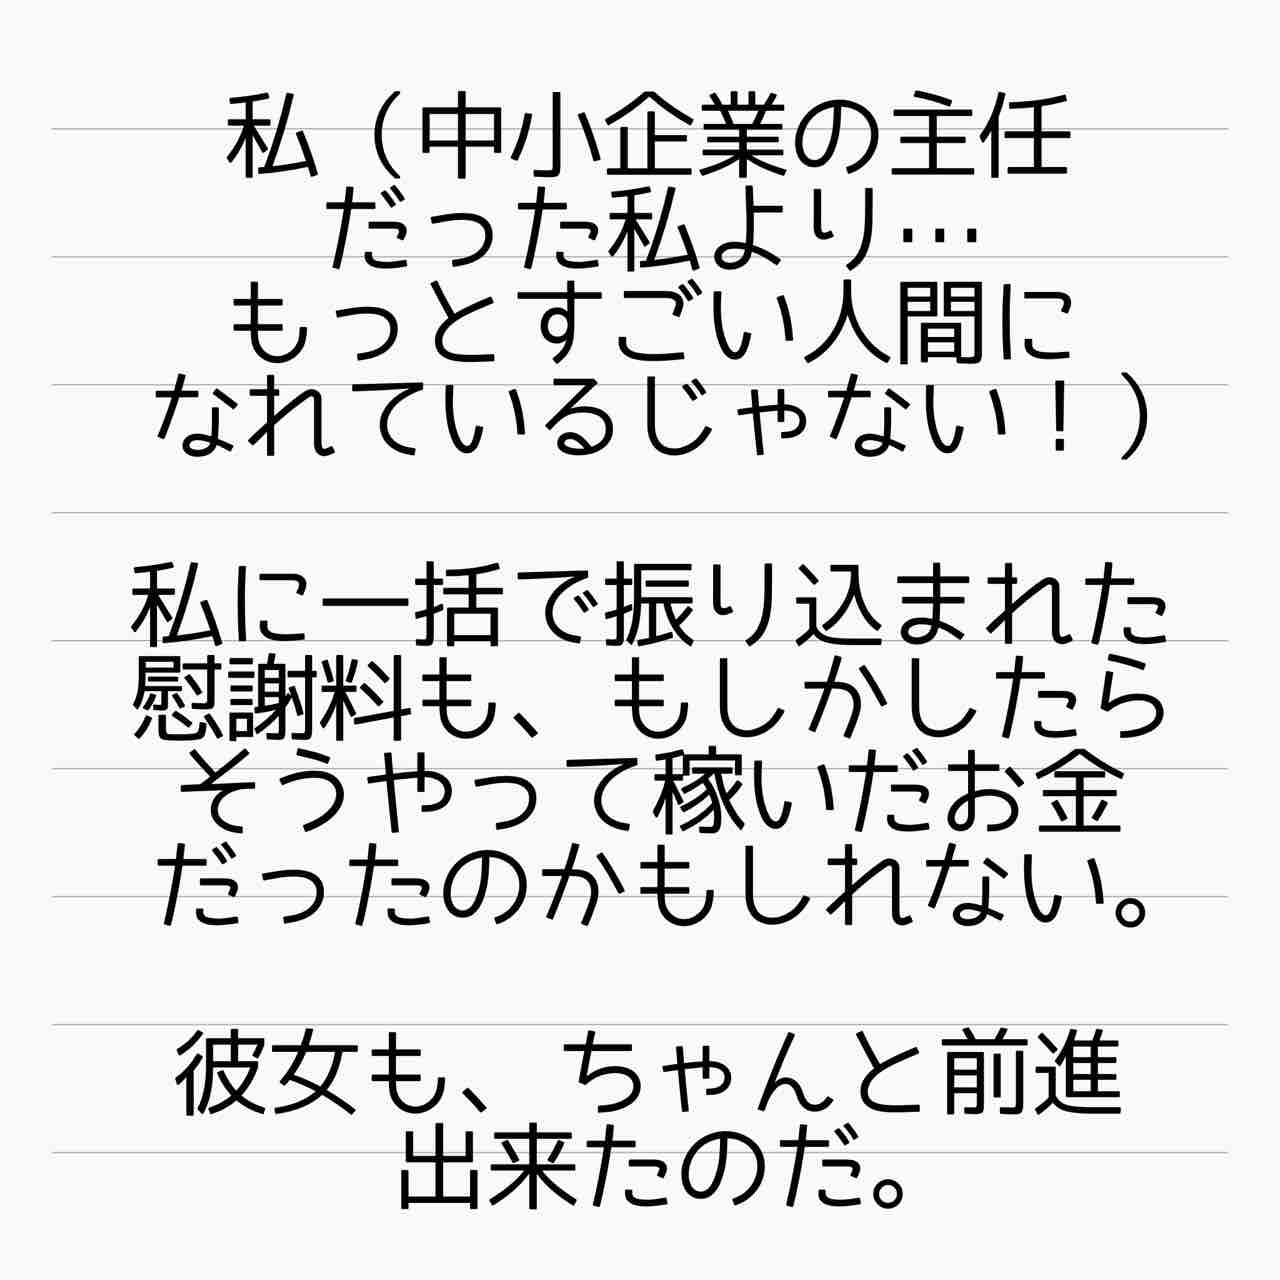 私（中小企業の主任
だった私より…
もっとすごい人間に
なれているじゃない！）
私に一括で振り込まれた
慰謝料も、もしかしたら
そうやって稼いだお金
だったのかもしれない。
彼女も、ちゃんと前進
出来たのだ。